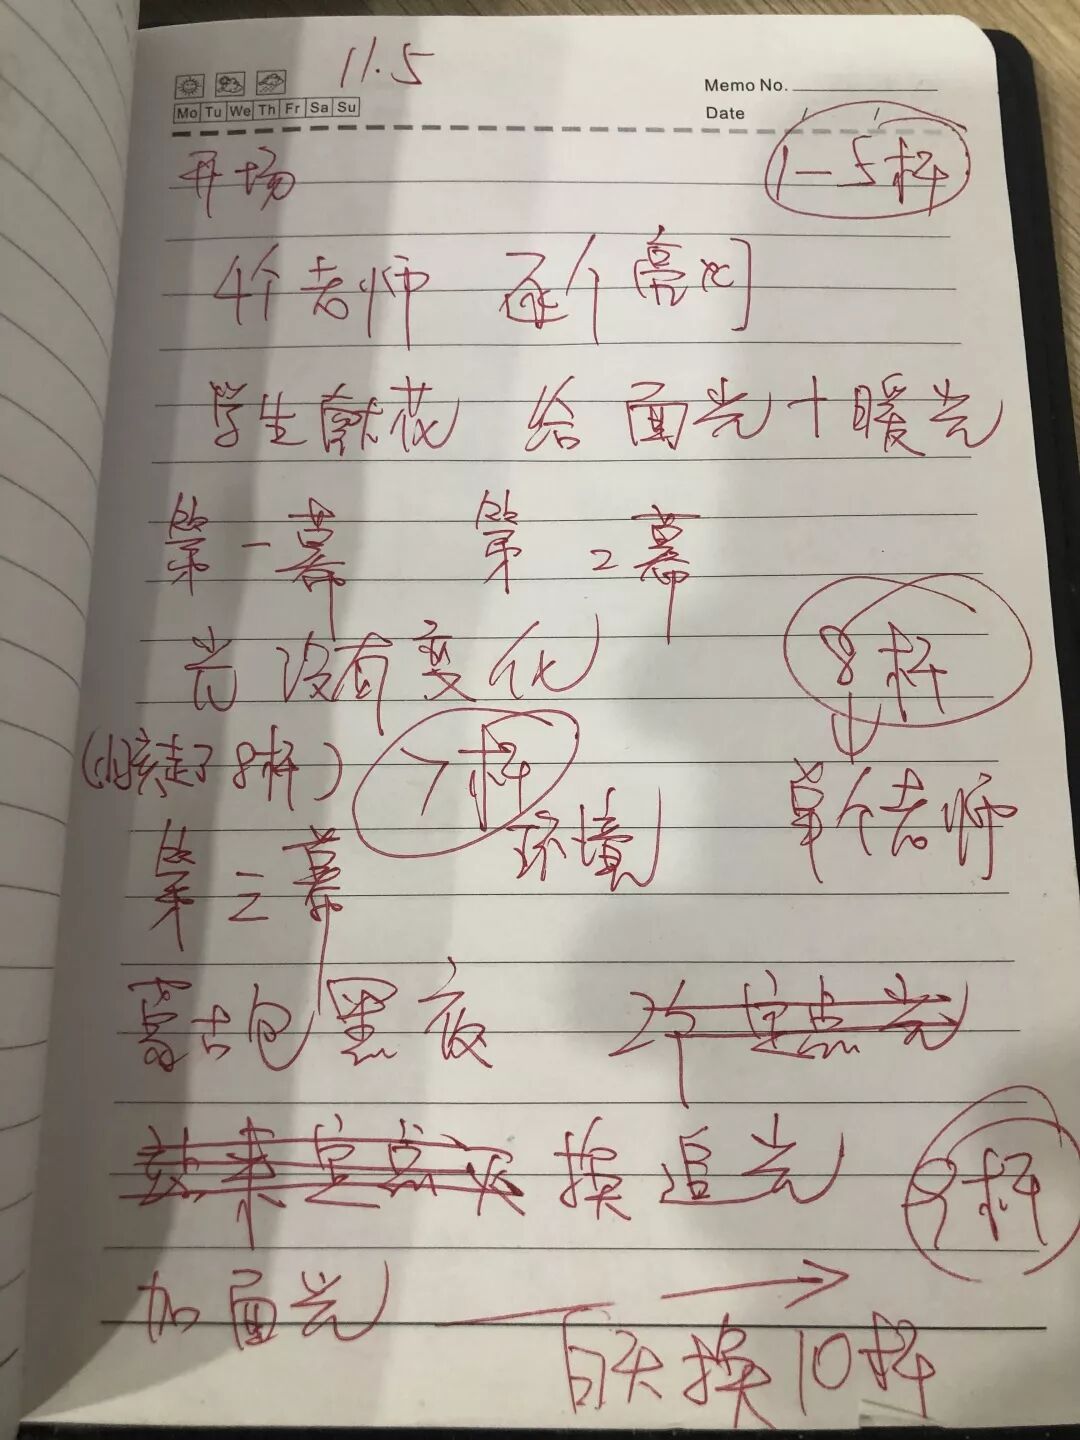 11.5
Memo No.
Mo Tu We Th Fr Sa Su
Date
开场 1-5杆
4个老师 逐个亮
学生献花 给面光+暖光
第一幕 第2幕
光没有变化 8杆
(小孩走了8杆) 7杆 单个老师
环境
第三幕
蒙古包黑夜 2个定点光
效果定点灭 换追光 9杆
加面光
白天换10杆